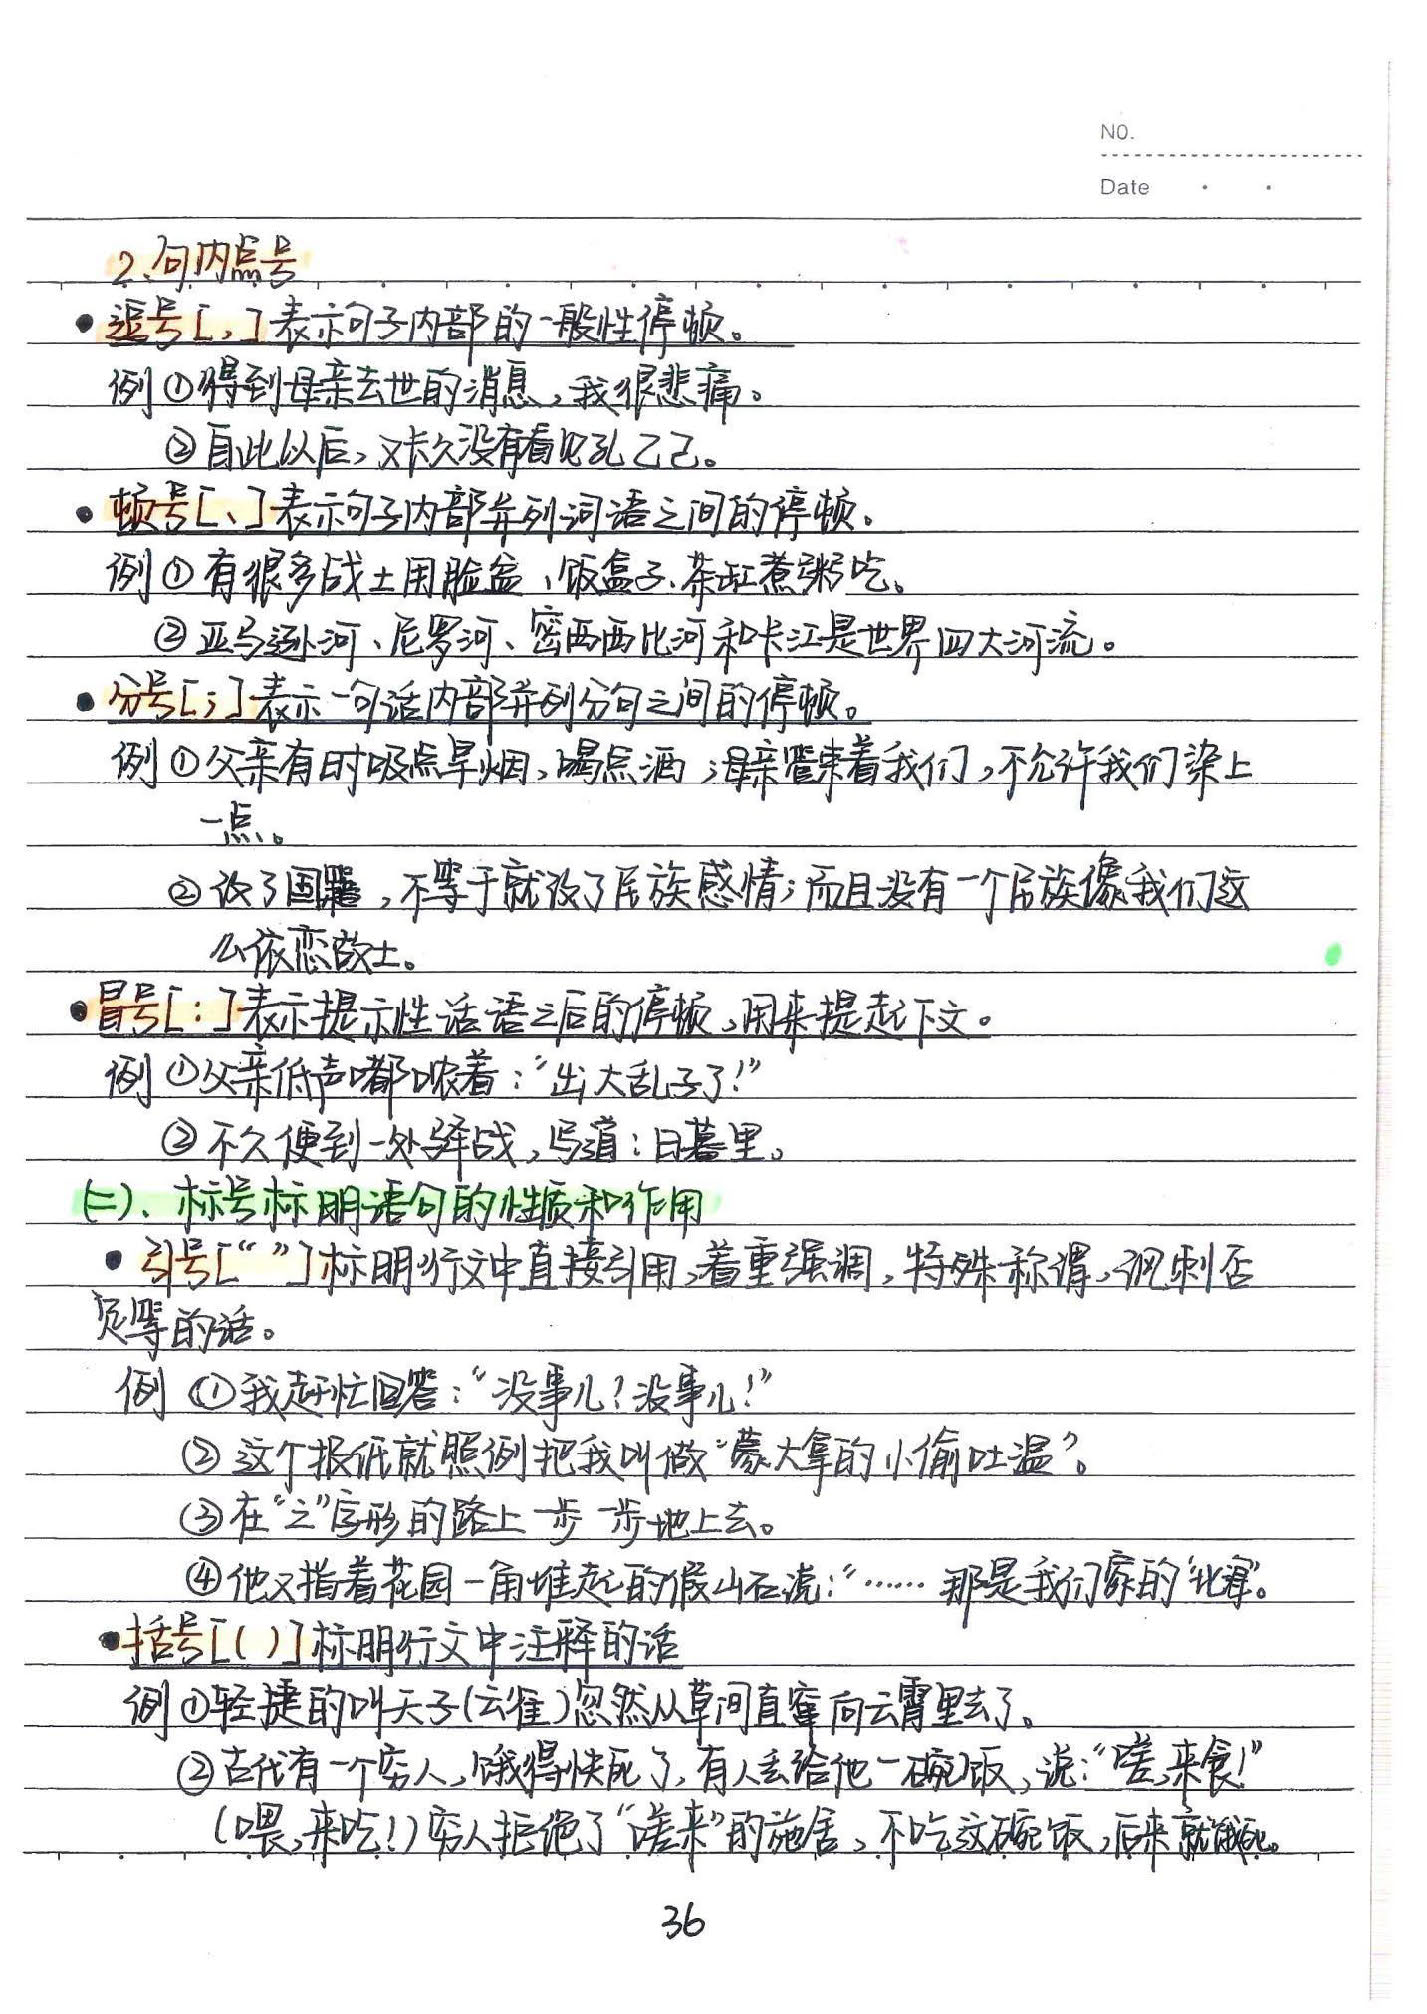 NO.
Date
2、句内点号
• 逗号[，]表示句子内部的一般性停顿。
例①得到母亲去世的消息，我很悲痛。
②自此以后，又长久没有看见孔乙己。
• 顿号[、]表示句子内部并列词语之间的停顿。
例①有很多战士用脸盆、饭盒子、茶缸煮粥吃。
②亚马逊河、尼罗河、密西西比河和长江是世界四大河流。
• 分号[；]表示一句话内部并列分句之间的停顿。
例①父亲有时吸点旱烟，喝点酒；母亲管束着我们，不允许我们染上
一点。
②改了国籍，不等于就改了民族感情；而且没有一个民族像我们这
么依恋故土。
• 冒号[：]表示提示性话语之后的停顿，用来提起下文。
例①父亲低声嘟哝着：“出大乱子了！”
②不久便到一处驿战，写道：日暮里。
(二)、标号标明语句的性质和作用
• 引号[“ ”]标明行文中直接引用，着重强调，特殊称谓，讽刺否
定等的话。
例①我赶忙回答：“没事儿？没事儿！”
②这个报纸就照例把我叫做“蒙大拿的小偷吐温”。
③在“之”字形的路上一步一步地上去。
④他又指着花园一角堆起的假山石说：“……那是我们家的‘北海’。
• 括号[( )]标明行文中注释的话
例①轻捷的叫天子(云雀)忽然从草间直窜向云霄里去了。
②古代有一个穷人，饿得快死了，有人丢给他一碗饭，说：“嗟，来食！”
(喂，来吃！)穷人拒绝了“嗟来”的施舍，不吃这碗饭，后来就饿死。
36